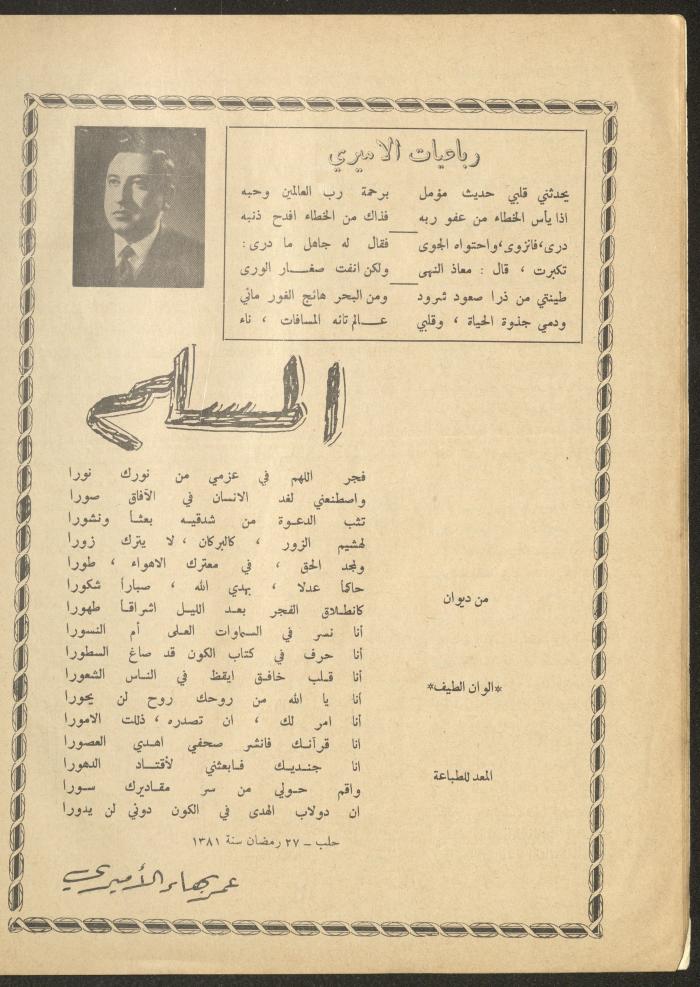 رباعيات الاميري
يحدثني قلبي حديث مؤمل برحمة رب العالمين وحبه
اذا يأس الخطاء من عفو ربه فذاك من الخطاء افدح ذنبه
درى، فانزوى، واحتواه الجوى فقال له جاهل ما درى :
تكبرت ، قال : معاذ النهى ولكن انفت صغار الورى
طينتي من ذرا صعود شرود ومن البحر هائج الفور مائي
ودمي جذوة الحياة ، وقلبي عالم تائه المسافات ، ناء
المسلم
فجر اللهم في عزمي من نورك نورا
واصطنعني لغد الانسان في الآفاق صورا
تثب الدعوة من شدقيه بعثاً ونشورا
لهشيم الزور ، كالبركان ، لا يترك زورا
ولمجد الحق ، في معترك الاهواء ، طورا
حاكماً عدلا ، بهدي الله ، صباراً شكورا
كانطلاق الفجر بعد الليل اشراقاً طهورا
أنا نسر في السماوات العلى أم النسورا
أنا حرف في كتاب الكون قد صاغ السطورا
أنا قلب خافق ايقظ في الناس الشعورا
أنا يا الله من روحك روح لن يحورا
أنا امر لك ، ان تصدره ، ذللت الامورا
انا قرآنك فانشر صحفي اهدي العصورا
انا جنديك فابعثني لأقتاد الدهورا
واقم حولي من سر مقاديرك سورا
ان دولاب الهدى في الكون دوني لن يدورا
من ديوان
*الوان الطيف*
المعد للطباعة
حلب – ٢٧ رمضان سنة ١٣٨١
عمر بهاء الأميري